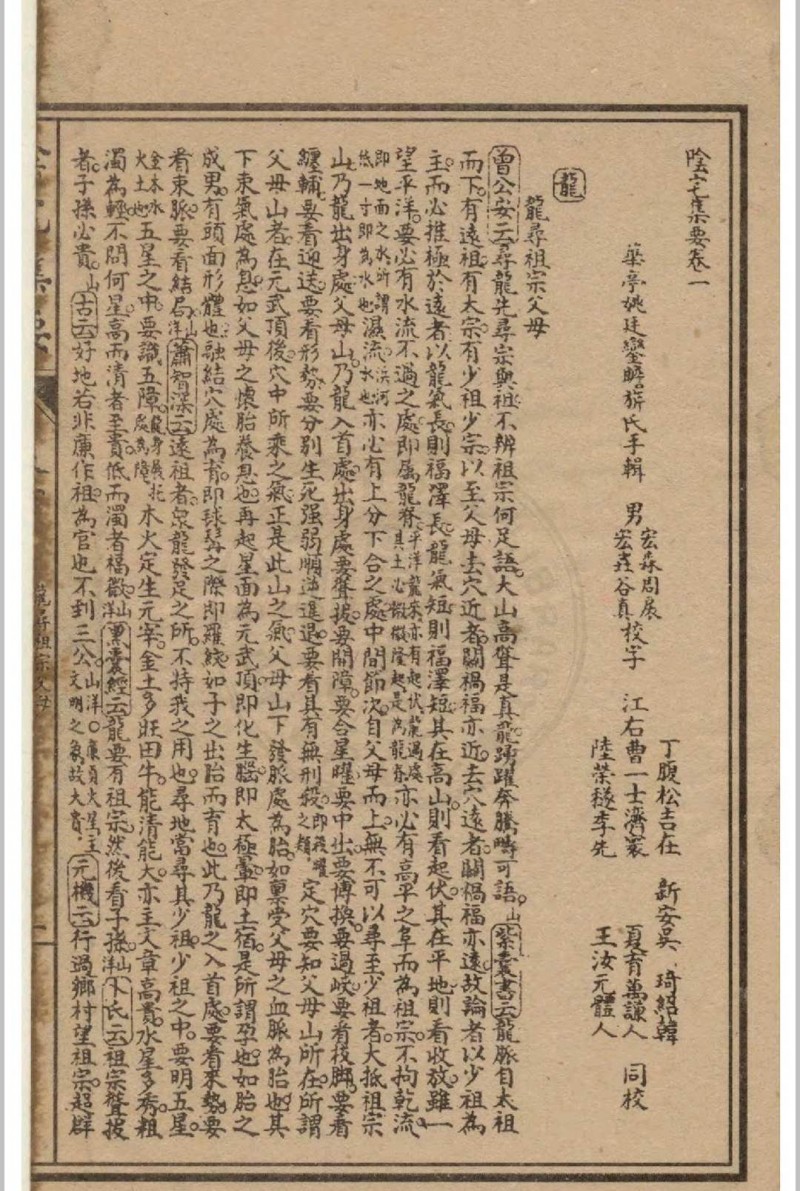 陰宅集要卷一
華亭姚廷鑾瞻旂氏手輯　男宏森周展
宏蕘谷真校字　江右曹一士濟寰　丁腹松吉在　新安吳琦紹韓　夏育萬謙人
陸榮穟李先　王汝元體人　同校
龍
龍尋祖宗父母
曾公安云尋龍先尋宗與祖不辨祖宗何足語大山高聳是真龍踴躍奔騰疇可語山紫囊書云龍脈自太祖
而下有遠祖有太宗有少祖少宗以至父母去穴近者關禍福亦近去穴遠者關禍福亦遠故論者以少祖為
主而必推極於遠者以龍氣長則福澤長龍氣短則福澤短其在高山則看起伏其在平地則看收放雖一
望平洋要必有水流不過之處即屬龍脊平洋龍來亦有起伏龍過處其土必微微隆起是為龍脊亦必有高平之阜而為祖宗不拘乾流
即地面之水所謂低一寸即為水也濕流浜河水也亦必有上分下合之處中間節次自父母而上無不可以尋至少祖者大抵祖宗
山乃龍出身處父母山乃龍入首處出身處要聳拔要開障要合星曜要中出要博換要過峽要看枝腳要看
纏輔要看迎送要看形勢要分別生死強弱順逆進退要看其有無刑殺即殺曜之類定穴要知父母山所在所謂
父母山者在元武頂後穴中所乘之氣正是此山之氣父母山下發脈處為胎如稟受父母之血脈為胎也其
下束氣處為息如父母之懷胎養息也再起星面為元武頂即化生腦即太極暈即土宿是所謂孕也如胎之
成男有頭面形體也融結穴處為育即球髯之際即羅紋如子之出胎而育也此乃龍之入首處要看來勢要
看束脈要看結局山洋蕭智深云遠祖者眾龍發足之所不持我之用也尋地當尋其少祖少祖之中要明五星
金木水火土也五星之中要識五障龍身幾托處為障木火定生元宰金土多旺田牛能清能大亦主文章高貴水星多秀粗
濁為輕不問何星高而清者至貴低而濁者福微山洋黑囊經云龍要有祖宗然後看子孫山洋卜氏云祖宗聳拔
者子孫必貴山古云好地若非廉作祖為官也不到三公山洋。廉貞火星主文明之象故大貴元機云行過鄉村望祖宗超群
龍尋祖宗父母